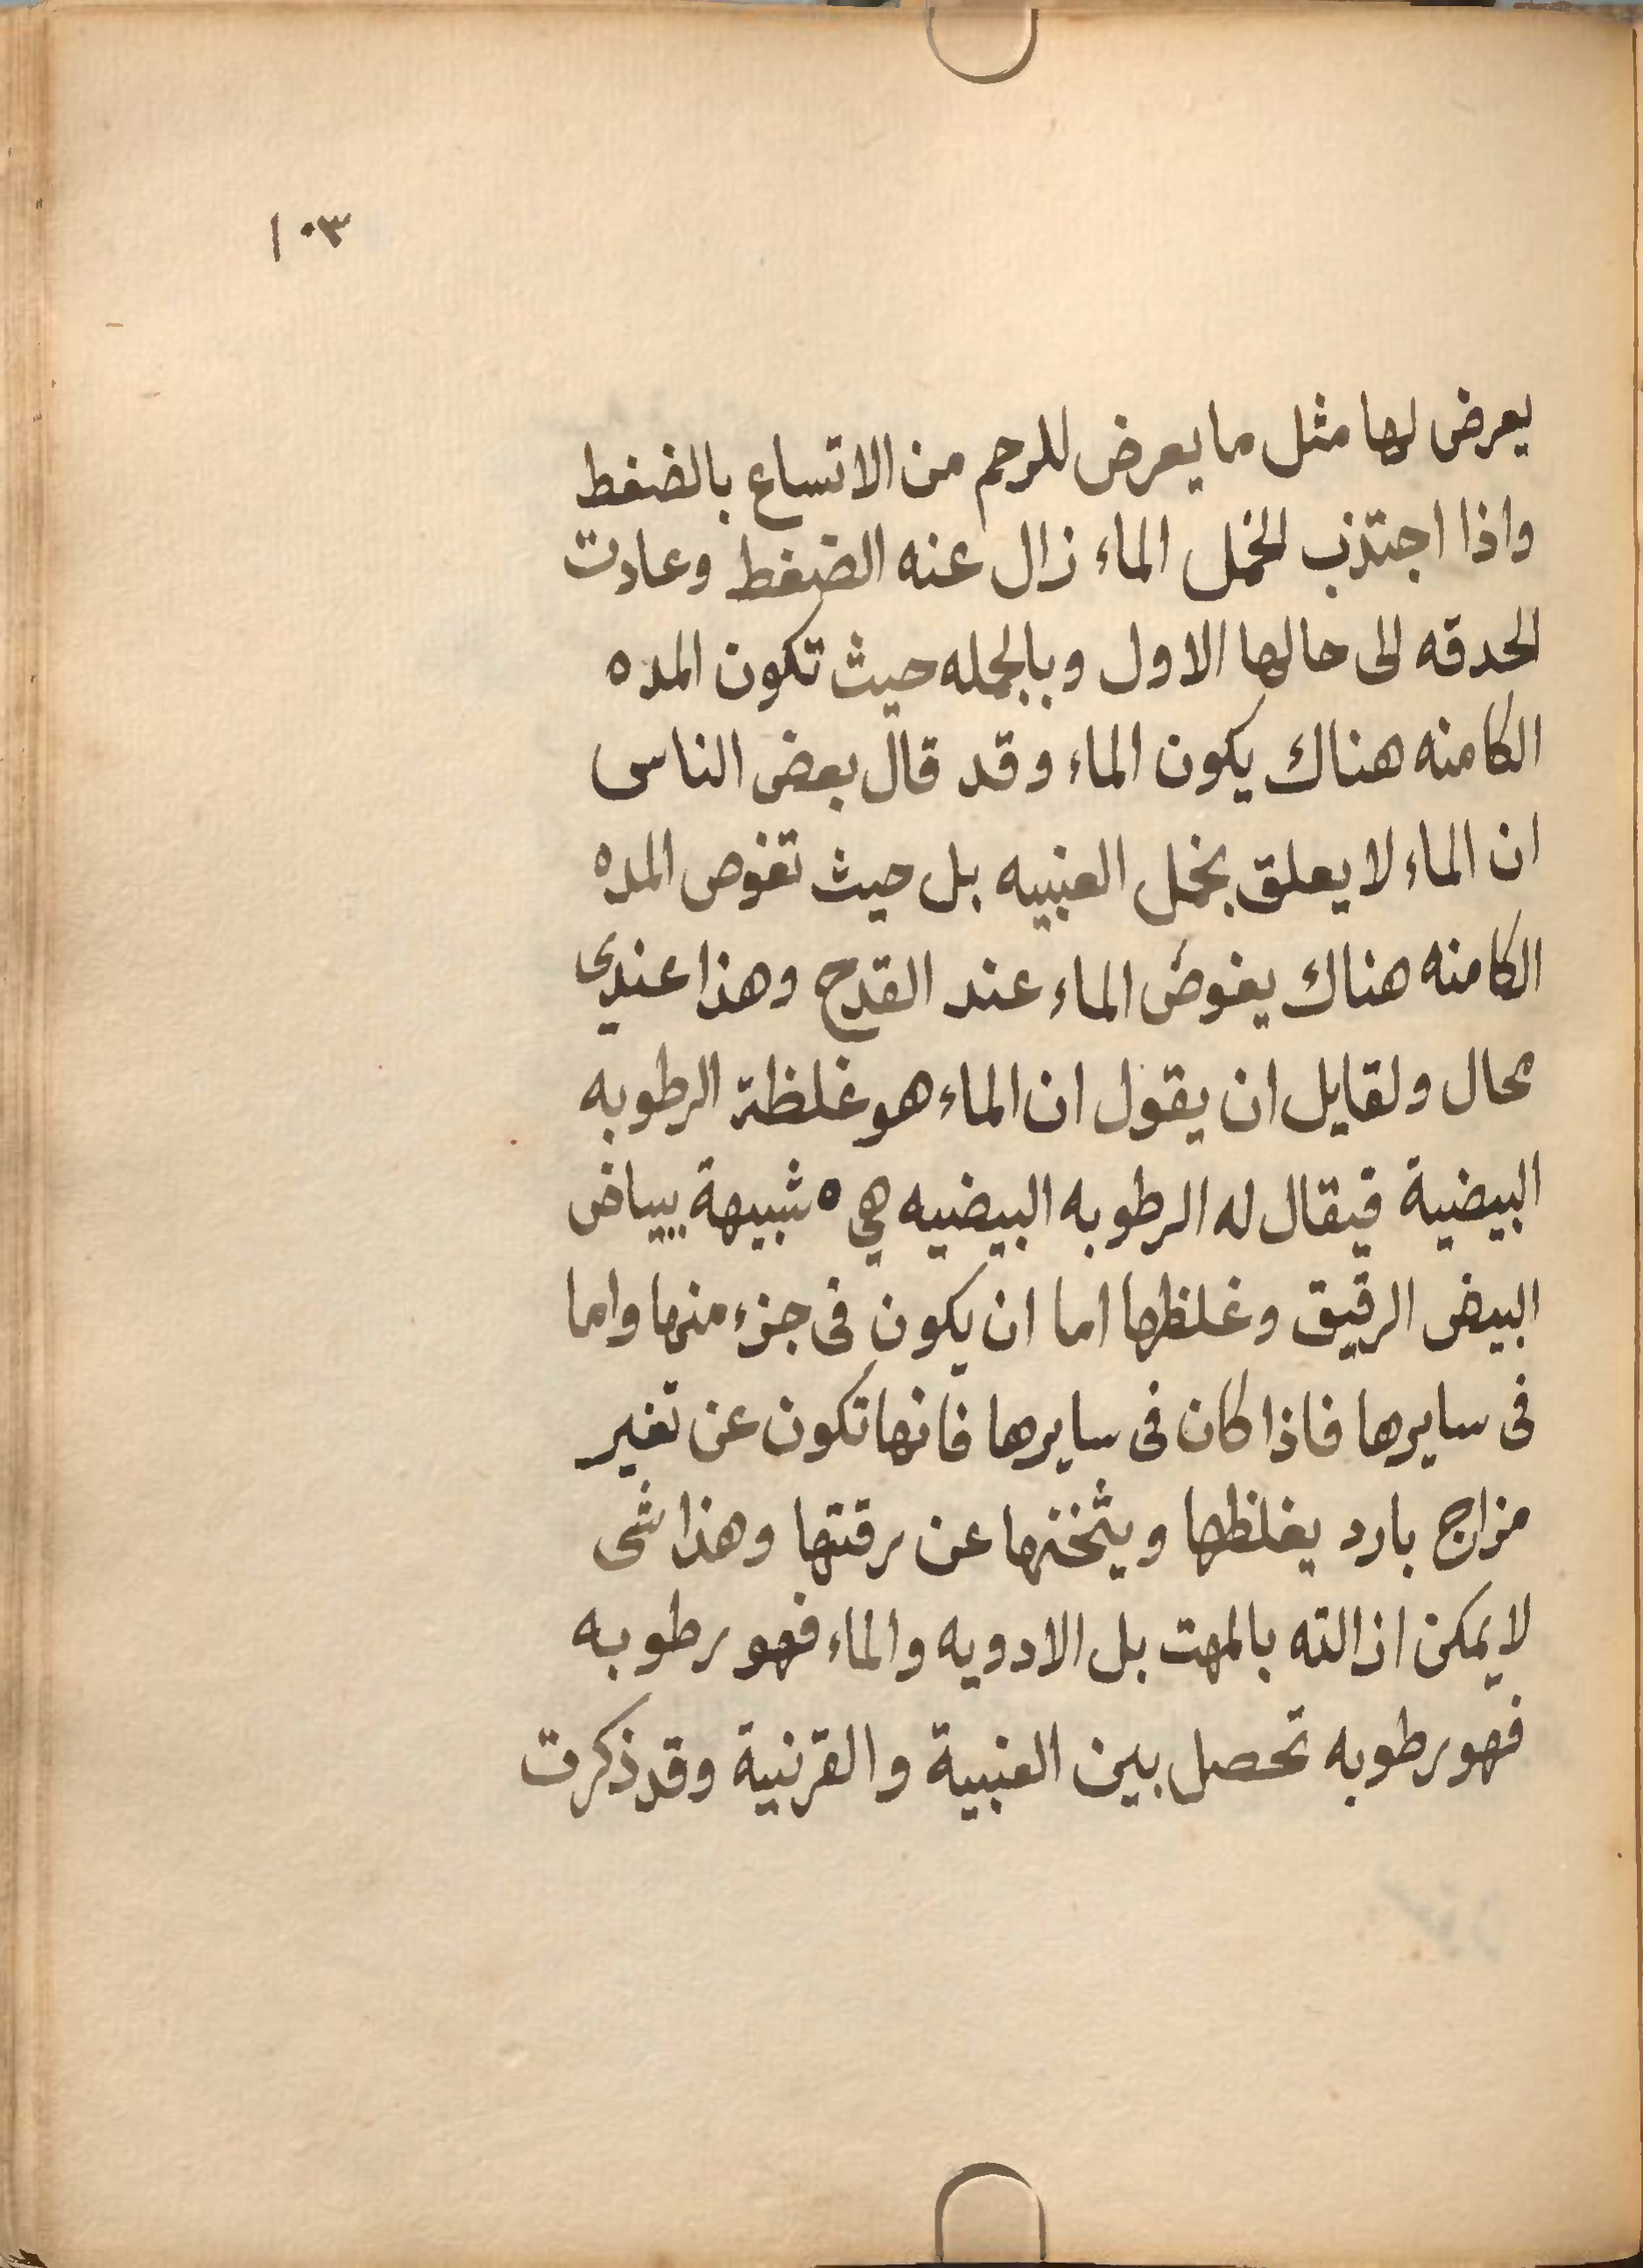 ١٠٣
يعرض لها مثل ما يعرض للرحم من الاتساع بالضغط
واذا اجتذب الخمل الماء زال عنه الضغط وعادت
الحدقه الى حالها الاول وبالجمله حيث تكون المده
الكامنه هناك يكون الماء وقد قال بعض الناس
ان الماء لا يعلق بخمل العنبيه بل حيث تغوص المده
الكامنه هناك يغوص الماء عند القدح وهذا عندى
محال ولقايل ان يقول ان الماء هو غلظة الرطوبه
البيضية فيقال له الرطوبه البيضيه هي ه شبيهة ببياض
البيض الرقيق وغلظها اما ان يكون فى جزء منها واما
فى سايرها فاذا كان فى سايرها فانها تكون عن تغير
مزاج بارد يغلظها ويثخنها عن رقتها وهذا شى
لا يمكن ازالته بالمهت بل الادويه والماء فهو رطوبه
فهو رطوبه تحصل بين العنبية والقرنية وقد ذكرت